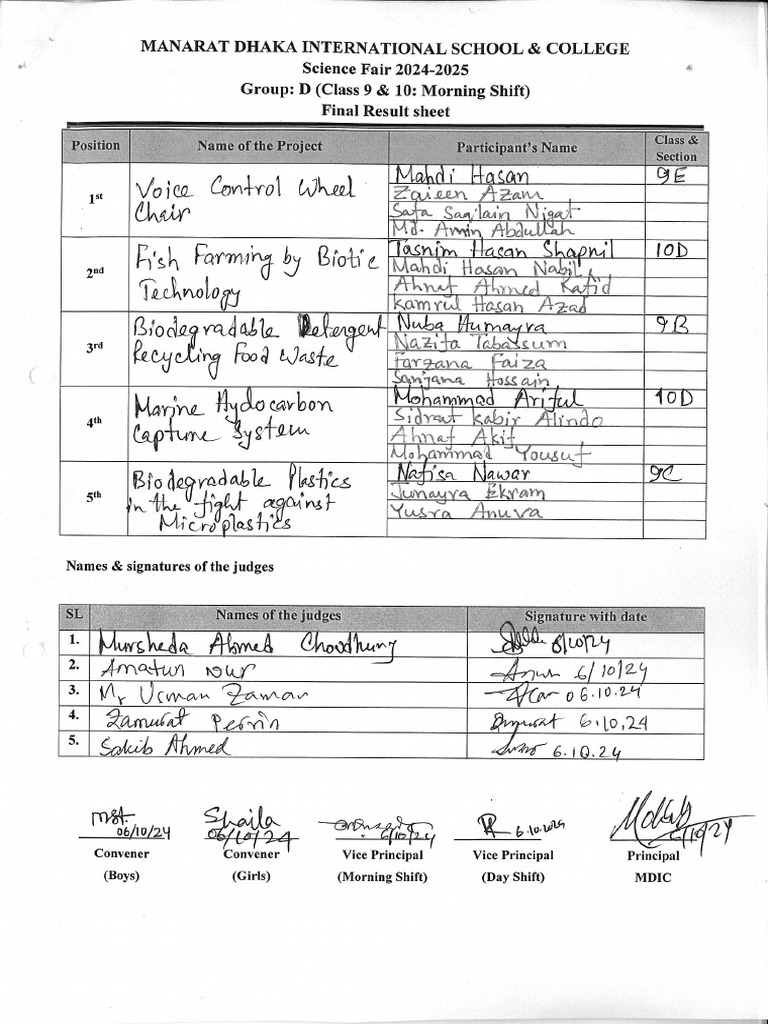 MANARAT DHAKA INTERNATIONAL SCHOOL & COLLEGE
Science Fair 2024-2025
Group: D (Class 9 & 10: Morning Shift)
Final Result sheet
Position Name of the Project Participant's Name Class & Section
1st Voice Control Wheel Chair Mahdi Hasan 9E
Zaieen Azam
Safa Saqlain Nigat
Md. Amin Abdullah
2nd Fish Farming by Biotic Technology Tasnim Hasan Shapnil 10D
Mahdi Hasan Nabil,
Ahnaf Ahmed Rafid
Kamrul Hasan Azad
3rd Biodegradable Detergent Recycling Food Waste Nuba Humayra 9B
Nazifa Tabassum
Farzana Faiza
Sanjana Hossain
4th Marine Hydocarbon Capture System Mohammad Ariful 10D
Sidrat Kabir Alindo
Ahnaf Akif
Mohammad Yousuf
5th Biodegradable Plastics in the fight against Microplastics Nafisa Nawar 9C
Junayra Ekram
Yusra Anuva
Names & signatures of the judges
SL Names of the judges Signature with date
1. Mursheda Ahmed Choudhury 6/10/24
2. Amatun Nur 6/10/24
3. Mr Usman Zaman 06.10.24
4. Zamurat Pervin 6.10.24
5. Sakib Ahmed 6.10.24
06/10/24 Shaila 06/10/24 6/10/24 6.10.2024 6/10/24
Convener Convener Vice Principal Vice Principal Principal
(Boys) (Girls) (Morning Shift) (Day Shift) MDIC